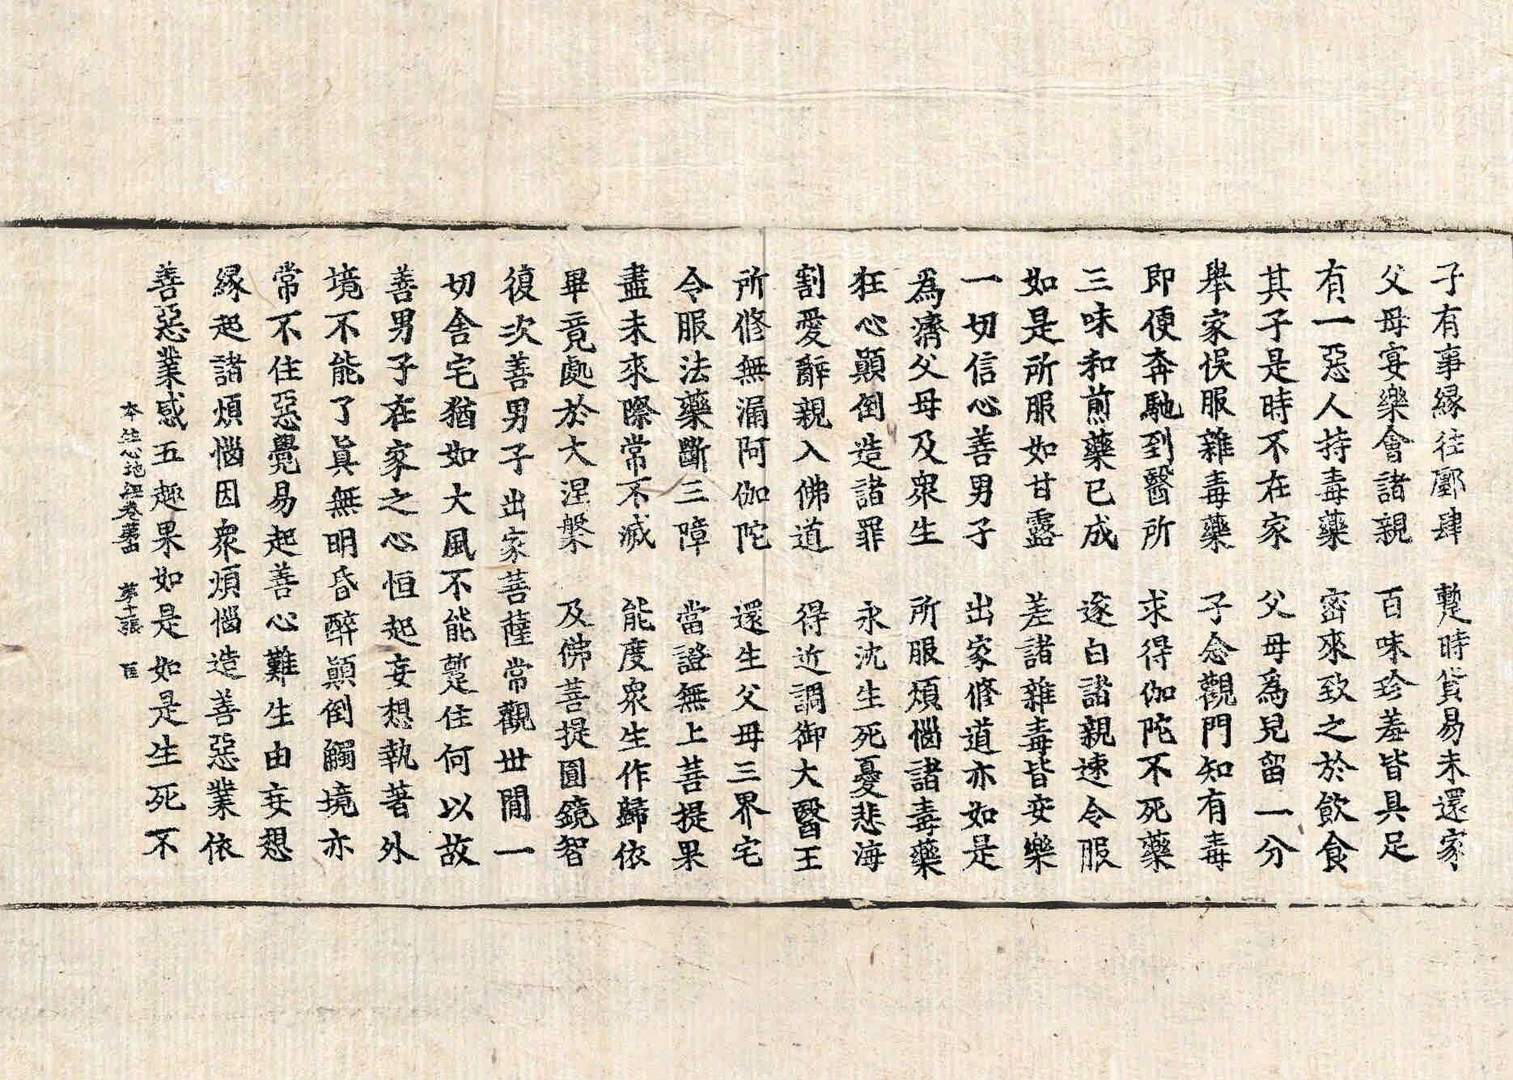 子有事緣往鄽肆　蹔時貨易未還家
父母宴樂會諸親　百味珍羞皆具足
有一惡人持毒藥　密來致之於飲食
其子是時不在家　父母為兒留一分
舉家悞服雜毒藥　子念觀門知有毒
即便奔馳到醫所　求得伽陀不死藥
三味和煎藥已成　遂白諸親速令服
如是所服如甘露　差諸雜毒皆安樂
一切信心善男子　出家修道亦如是
為濟父母及眾生　所服煩惱諸毒藥
狂心顛倒造諸罪　永沈生死憂悲海
割愛辭親入佛道　得近調御大醫王
所修無漏阿伽陀　還生父母三界宅
令服法藥斷三障　當證無上菩提果
盡未來際常不滅　能度眾生作歸依
畢竟處於大涅槃　及佛菩提圓鏡智
復次善男子出家菩薩常觀世間一
切舍宅猶如大風不能蹔住何以故
善男子在家之心恒起妄想執著外
境不能了真無明昏醉顛倒觸境亦
常不住惡覺易起善心難生由妄想
緣起諸煩惱因眾煩惱造善惡業依
善惡業感五趣果如是如是生死不
本生心地經卷第四　第十張　臣